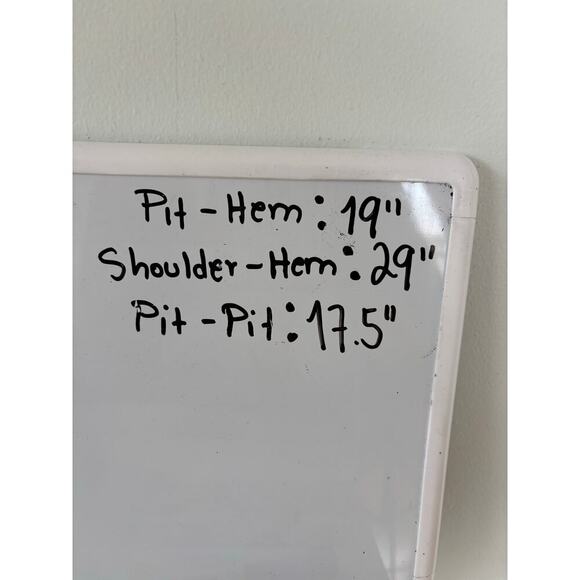 Pit - Hem: 19"
Shoulder - Hem: 29"
Pit - Pit: 17.5"